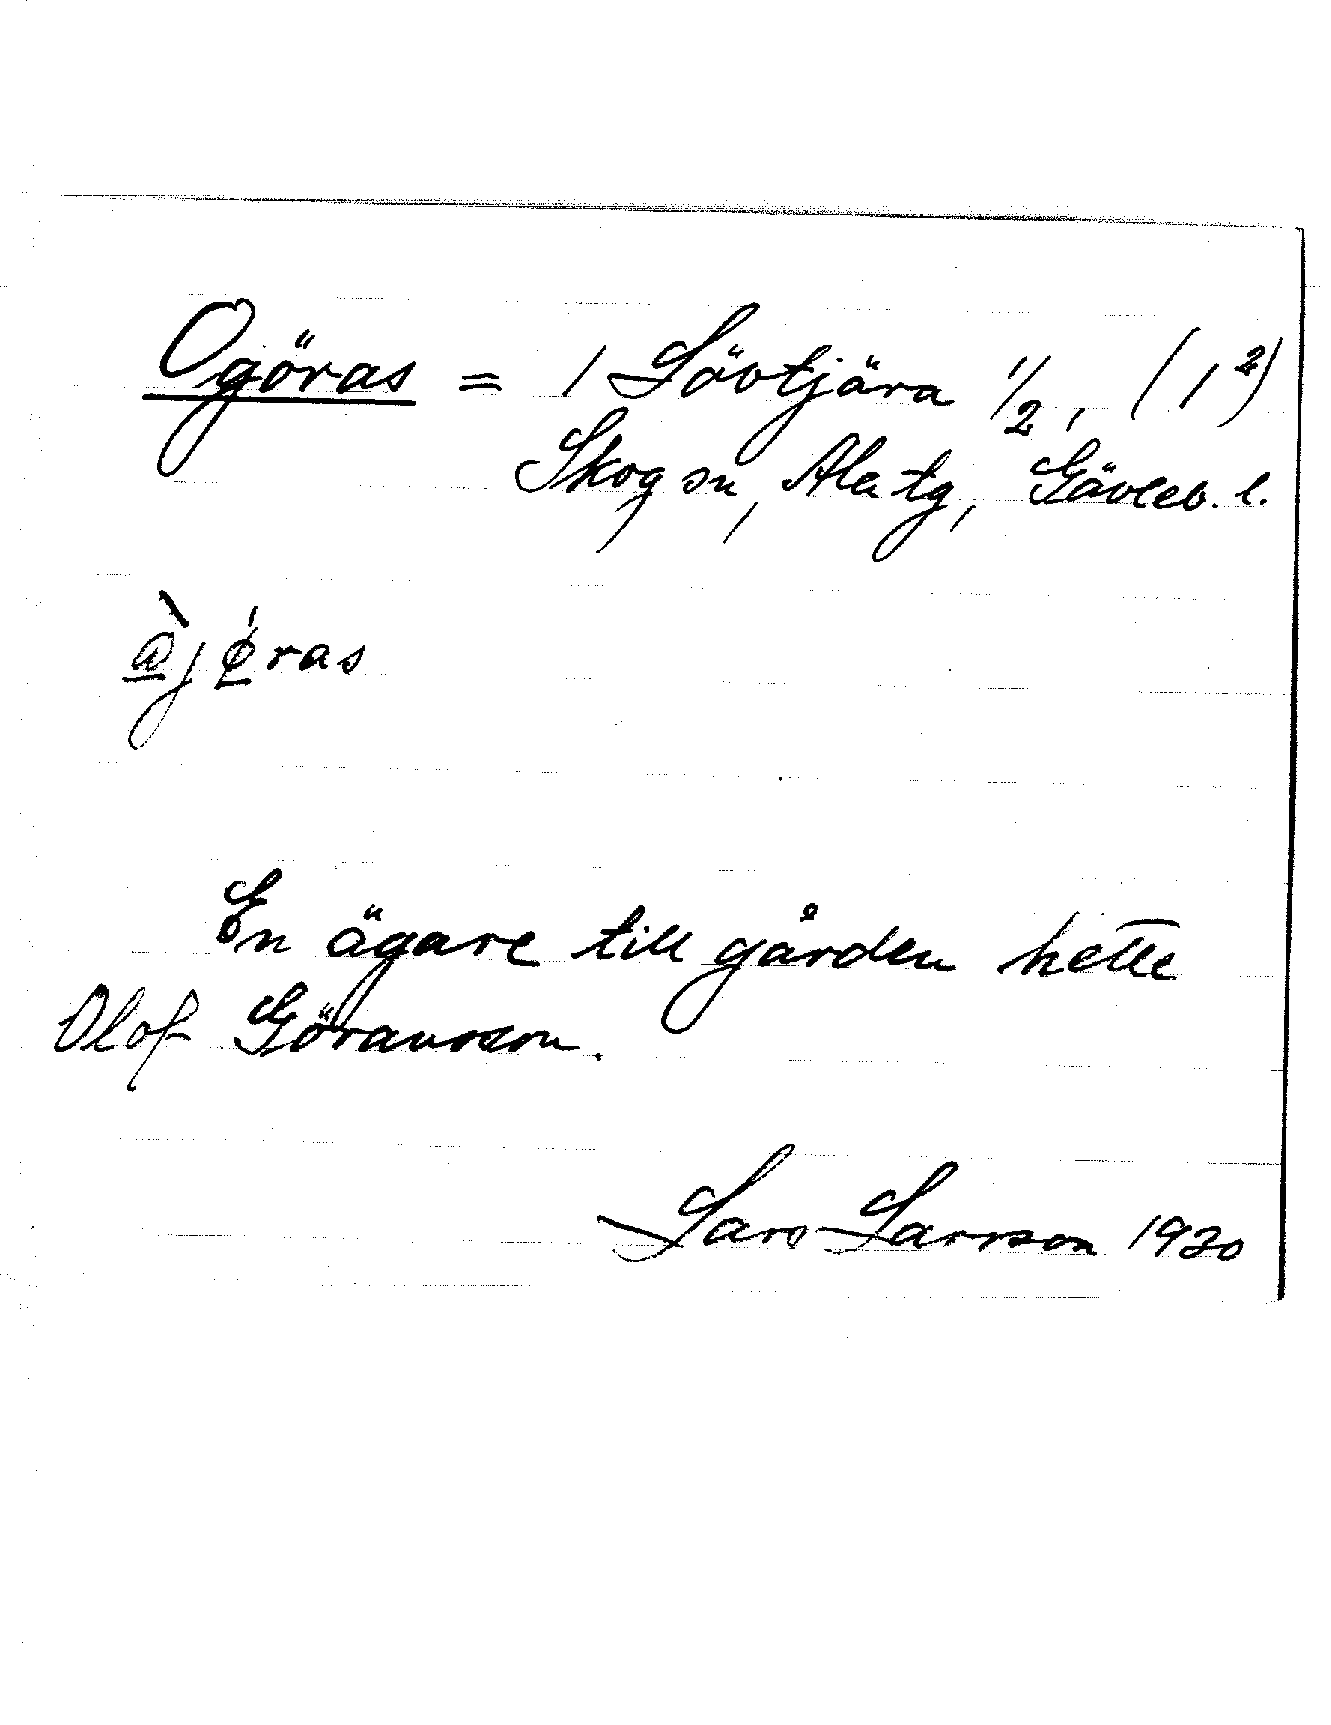 Ogöras = 1 Lövtjära 1/2, (1²)
Skog sn, Ala tg, Gävleb. l.
à̲jǿ̲ras
En ägare till gården hette
Olof Göransson.
Lars Larsson 1930